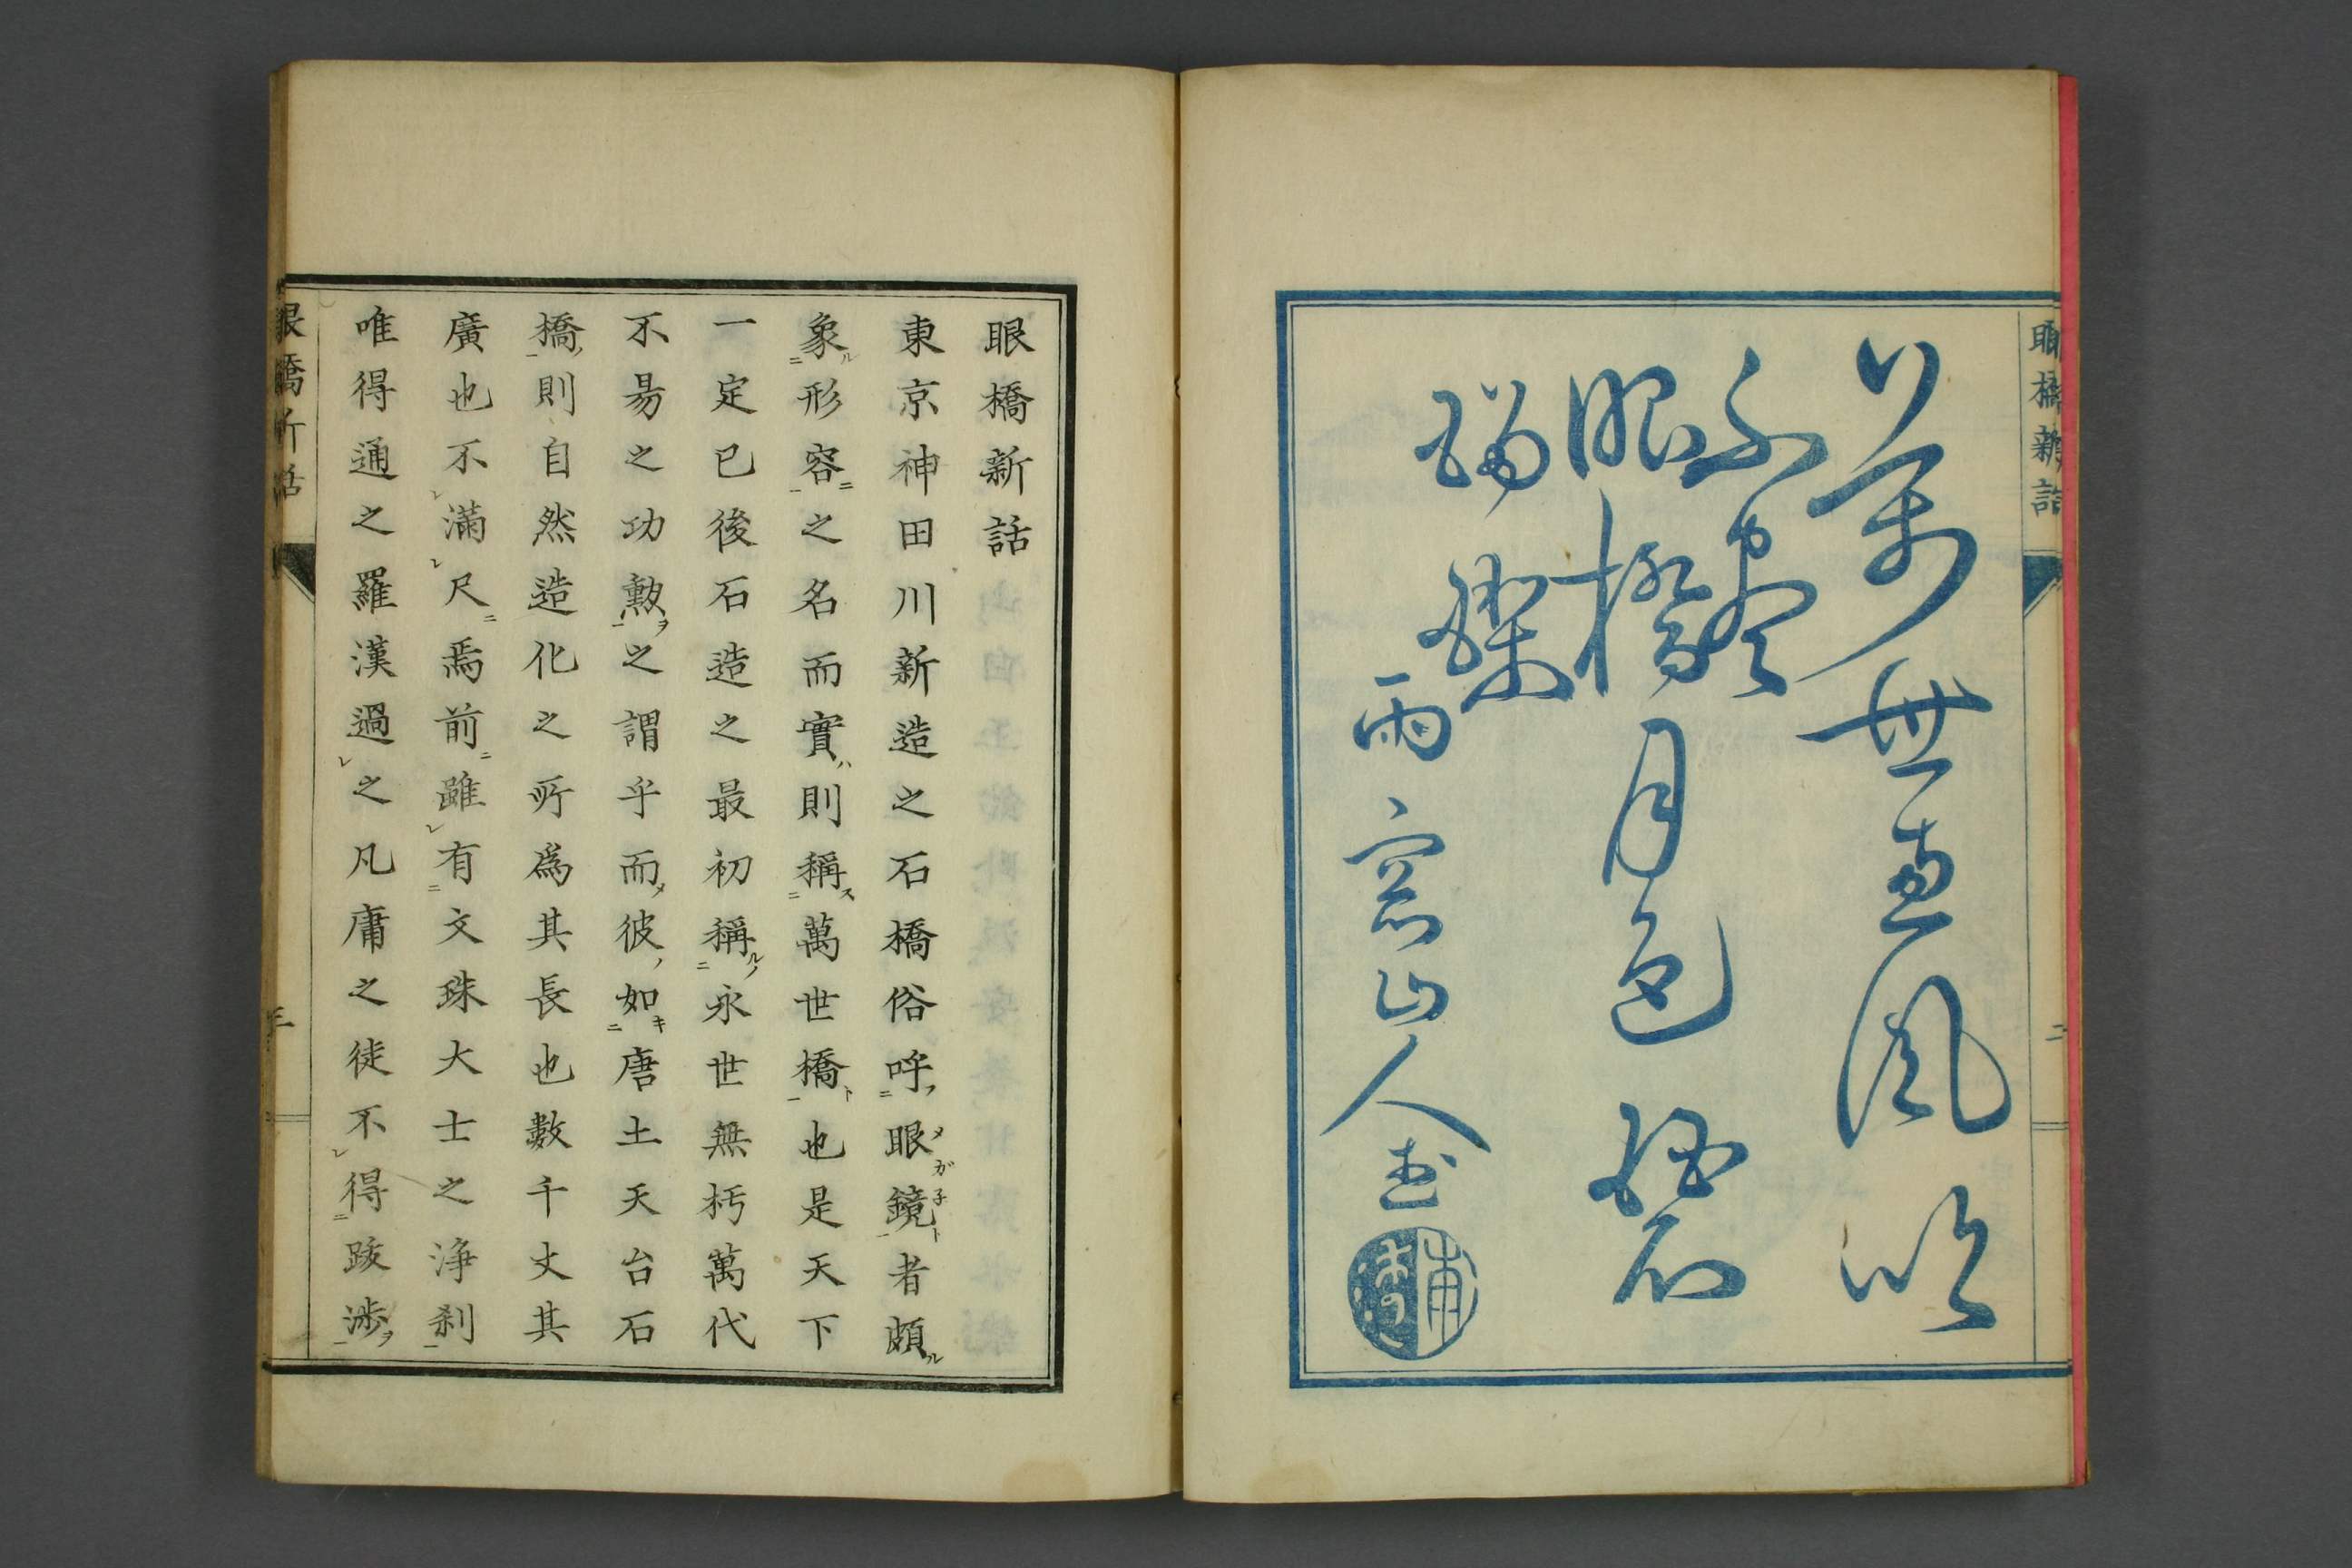 眼橋新話
二
萬世惠風吹
不盡
眼橋月色碧
瑠璃
雨窓山人書
眼橋新話
東京神田川新造之石橋俗呼眼鏡者頗
象形容之名而實則稱萬世橋也是天下
一定已後石造之最初稱永世無朽萬代
不易之功勲之謂乎而彼如唐土天台石
橋則自然造化之所爲其長也數千丈其
廣也不滿尺焉前雖有文珠大士之淨刹
唯得通之羅漢過之凡庸之徒不得跋渉
眼橋新話
三